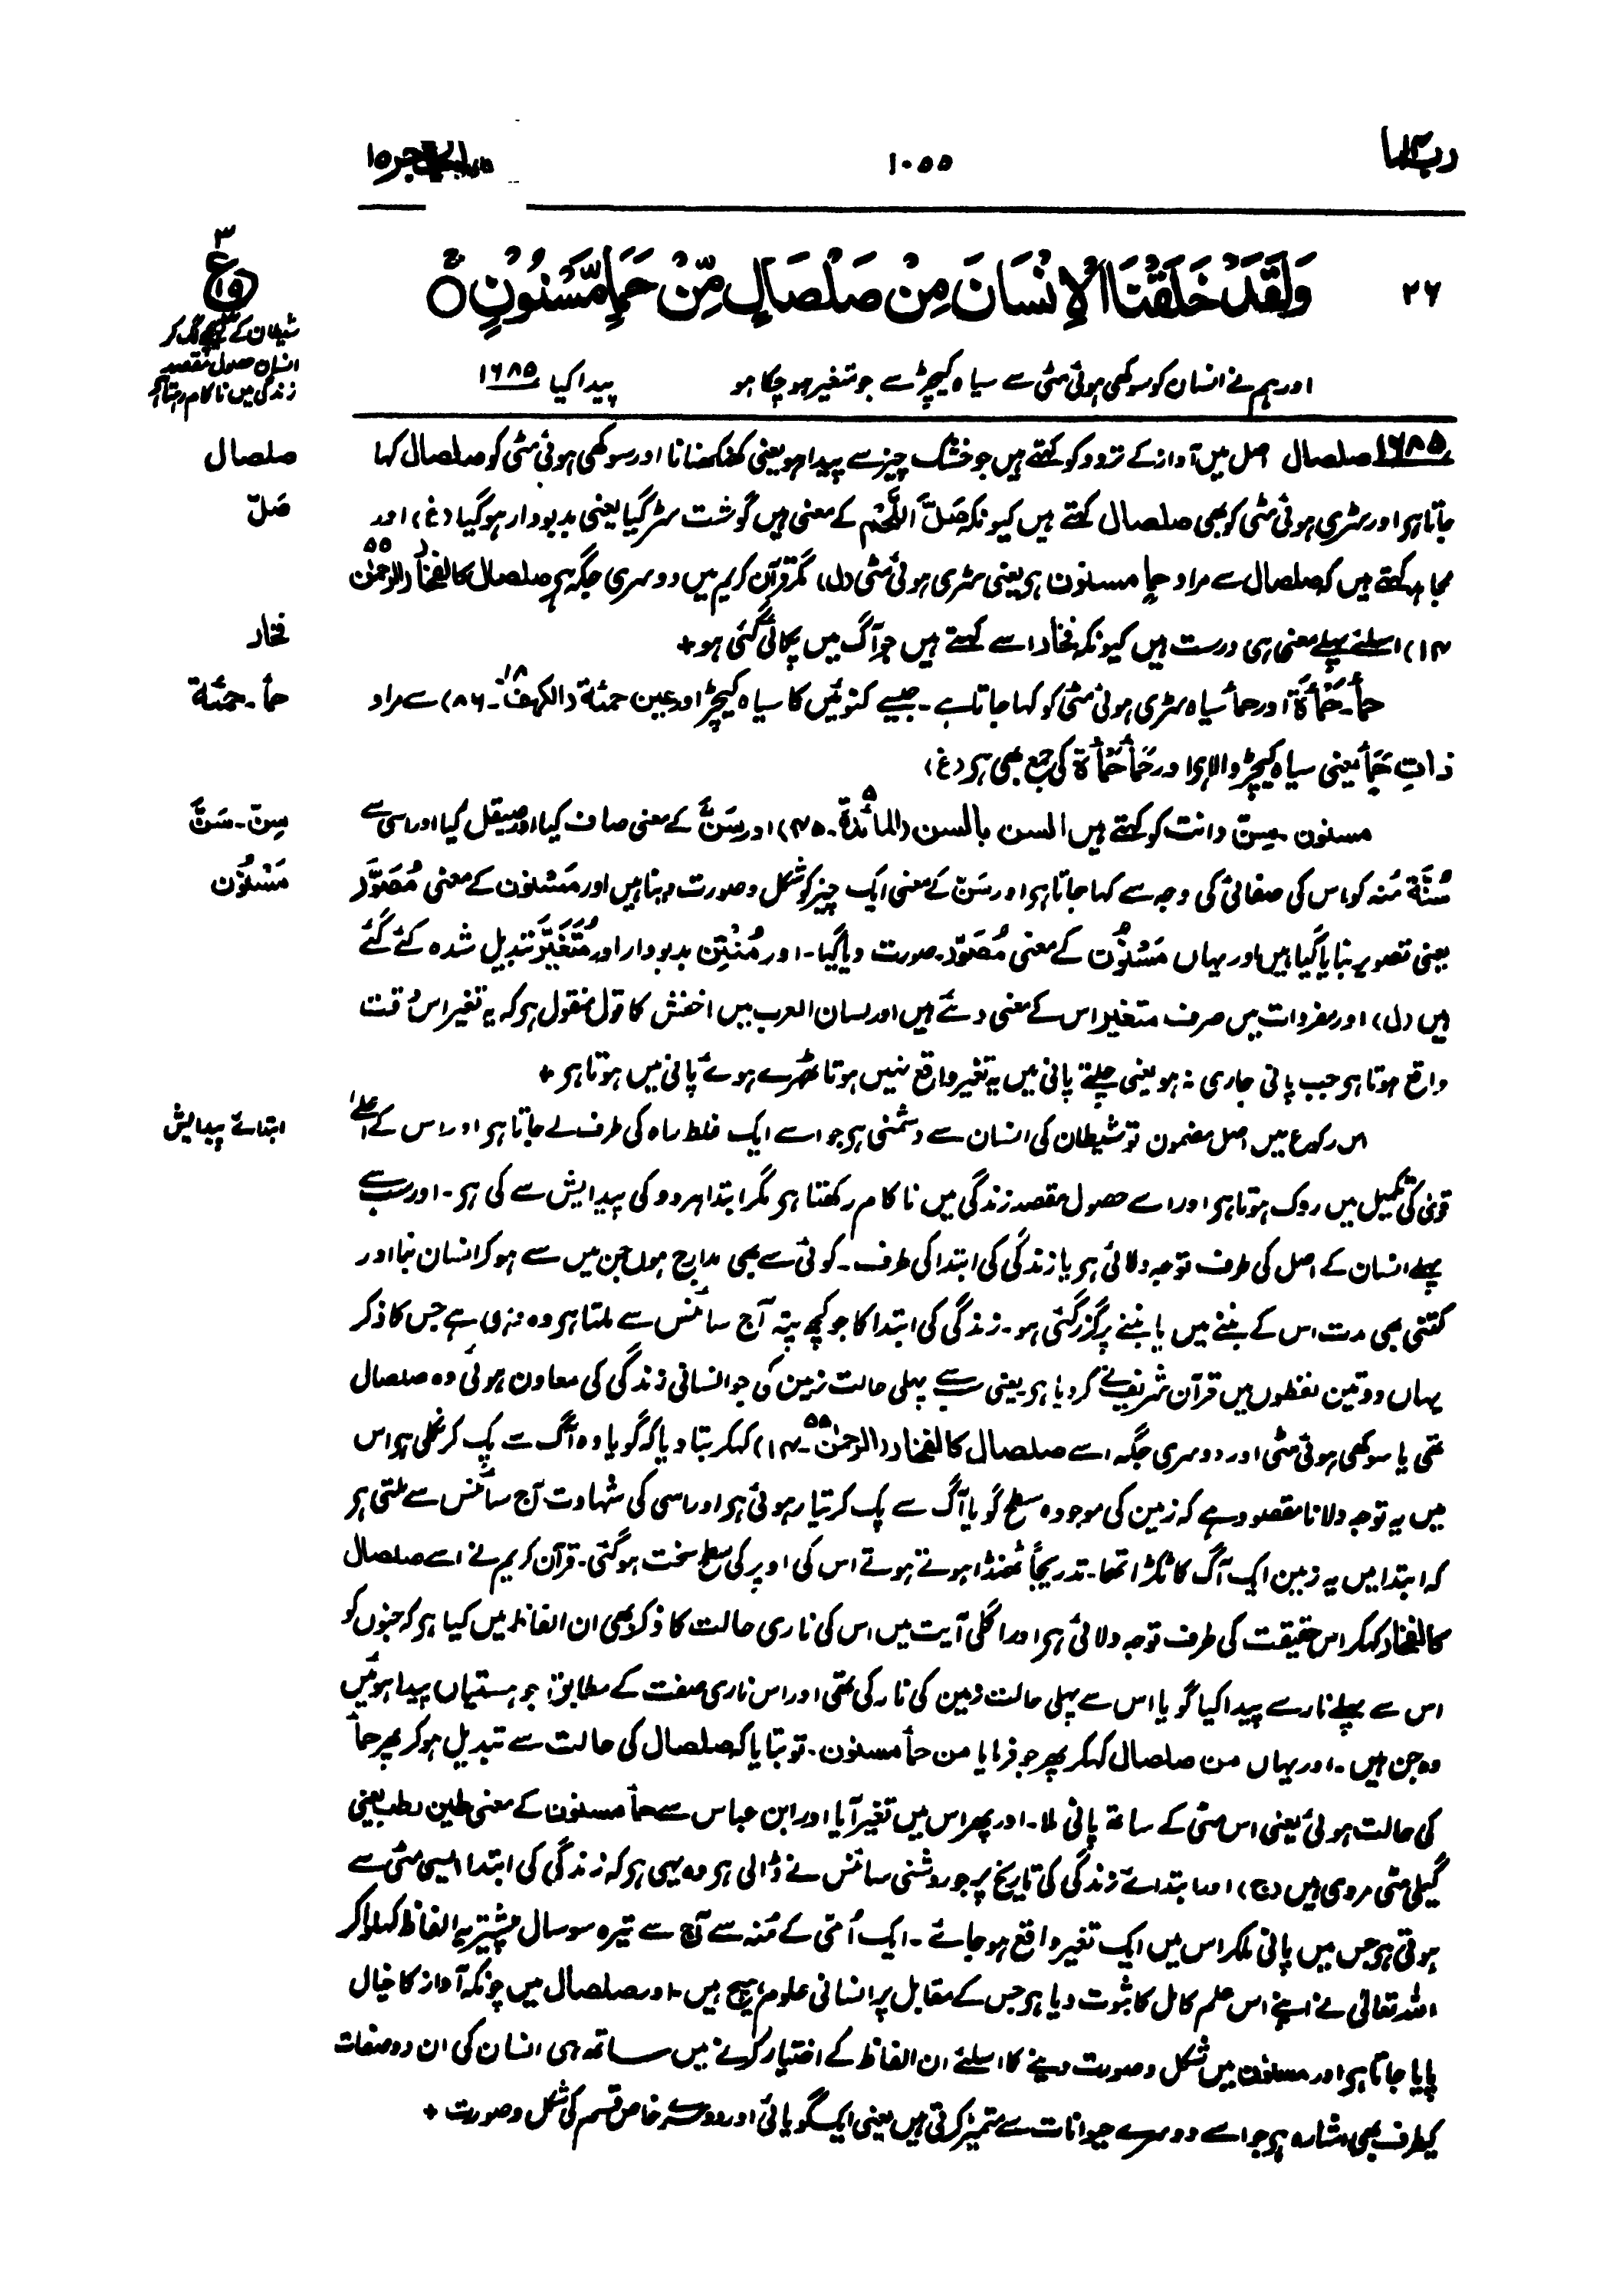 ربما ۱۴
۱۰۵۵
الحجر ۱۵
۲۶
وَلَقَدْ خَلَقْنَا الْإِنْسَانَ مِنْ صَلْصَالٍ مِّنْ حَمَإٍ مَّسْنُوْنٍ ۝
اور ہم نے انسان کو سوکھی ہوئی مٹی سے سیاہ کیچڑ سے جو متغیر ہو چکا ہو پیدا کیا ۱۶۸۵
۳
ع
شیطان کے پیچھے لگ کر
انسان حصول مقصد
زندگی میں ناکام رہتا ہے
۱۶۸۵ صلصال اصل میں آواز کے تردد کو کہتے ہیں جو خشک چیز سے پیدا ہو یعنی کھنکھنانا اور سوکھی ہوئی مٹی کو صلصال کہا
صلصال
جاتا ہی اور سڑی ہوئی مٹی کو بھی صلصال کہتے ہیں کیونکہ صَلَّ اللَّحْم کے معنی ہیں گوشت سڑ گیا یعنی بدبودار ہوگیا (غ) اور
صَلّ
مجاہد کہتے ہیں کہ صلصال سے مراد حماٍ مسنون ہی یعنی سڑی ہوئی مٹی (ل) مگر قرآن کریم میں دوسری جگہ ہی صلصال کالفخار (الرحمٰن ۵۵
۱۴) اسلئے پہلے معنی ہی درست ہیں کیونکہ فخار اسے کہتے ہیں جو آگ میں پکائی گئی ہو +
فخار
حمأ۔ حَمْأَة اور حمأ سیاہ سڑی ہوئی مٹی کو کہا جاتا ہے۔ جیسے کنوئیں کا سیاہ کیچڑ اور عین حمئة (الکہف ۱۸۔ ۸۶) سے مراد
حمأ۔ حمئة
ذاتِ حَمَأٍ یعنی سیاہ کیچڑ والا ہی اور حَمَأ حَمْأَة کی جمع بھی ہی (غ)
مسنون۔ سِنّ دانت کو کہتے ہیں السن بالسن (المائدة ۵۔ ۴۵) اور سَنَّ کے معنی صاف کیا اور صیقل کیا اور اسی سے
سِنّ۔ سَنَّ
سُنَّة مُنہ کو اس کی صفائی کی وجہ سے کہا جاتا ہی اور سَنّ کے معنی ایک چیز کو شکل و صورت دینا ہیں اور مَسْنون کے معنی مُصَوَّر
مَسْنُوْن
یعنی تصویر بنایا گیا ہیں اور یہاں مَسْنُوْن کے معنی مُصَوَّر۔ صورت دیا گیا۔ اور مُنْتِن بدبودار اور مُتَغَيِّر تبدیل شدہ کئے گئے
ہیں (ل) اور مفردات میں صرف متغیر اس کے معنی دئے ہیں اور لسان العرب میں اخفش کا قول منقول ہی کہ یہ تغیر اس وقت
واقع ہوتا ہی جب پانی جاری نہ ہو یعنی چلتے پانی میں یہ تغیر واقع نہیں ہوتا ٹھہرے ہوئے پانی میں ہوتا ہی +
اس رکوع میں اصل مضمون تو شیطان کی انسان سے دشمنی ہی جو اسے ایک غلط راہ کی طرف لے جاتا ہی اور اس کے اعلےٰ
ابتدائے پیدایش
قویٰ کی تکمیل میں روک ہوتا ہی اور اسے حصول مقصد زندگی میں ناکام رکھتا ہی مگر ابتدا ہر دو کی پیدایش سے کی ہی۔ اور سب سے
پہلے انسان کے اصل کی طرف توجہ دلائی ہی یا زندگی کی ابتدا کی طرف۔ کوئی سے بھی مدارج ہوں جن میں سے ہو کر انسان بنا اور
کتنی بھی مدت اس کے بننے میں یا بننے پر گزر گئی ہو۔ زندگی کی ابتدا کا جو کچھ پتہ آج سائنس سے ملتا ہی وہ وہی ہے جس کا ذکر
یہاں دو تین لفظوں میں قرآن شریف نے کر دیا ہی یعنی سب سے پہلی حالت زمین کی جو انسانی زندگی کی معاون ہوئی وہ صلصال
تھی یا سوکھی ہوئی مٹی اور دوسری جگہ اسے صلصال کالفخار (الرحمٰن ۵۵۔ ۱۴) کہکر بتا دیا کہ گویا وہ آگ سے پک کر نکلی ہی اس
میں یہ توجہ دلانا مقصود ہے کہ زمین کی موجودہ سطح گویا آگ سے پک کر تیار ہوئی ہی اور اسی کی شہادت آج سائنس سے ملتی ہی
کہ ابتدا میں یہ زمین ایک آگ کا ٹکڑا تھا۔ تدریجاً ٹھنڈا ہوتے ہوتے اس کی اوپر کی سطح سخت ہوگئی۔ قرآن کریم نے اسے صلصال
کالفخار کہکر اس حقیقت کی طرف توجہ دلائی ہی اور اگلی آیت میں اس کی ناری حالت کا ذکر بھی ان الفاظ میں کیا ہی کہ جنوں کو
اس سے پہلے نار سے پیدا کیا گویا اس سے پہلی حالت زمین کی نار کی تھی اور اس ناری صفت کے مطابق جو ہستیاں پیدا ہوئیں
وہ جن ہیں۔ اور یہاں من صلصال کہکر پھر جو فرمایا من حمأ مسنون۔ تو بتایا کہ صلصال کی حالت سے تبدیل ہوکر پھر حمأ
کی حالت ہوئی یعنی اس مٹی کے ساتھ پانی ملا۔ اور پھر اس میں تغیر آیا اور ابن عباس سے حمأ مسنون کے معنی طین رطب یعنی
گیلی مٹی مروی ہیں (ج) اور ابتدائے زندگی کی تاریخ پر جو روشنی سائنس نے ڈالی ہی وہ یہی ہی کہ زندگی کی ابتدا ایسی مٹی سے
ہوتی ہی جس میں پانی ملکر اس میں ایک تغیر واقع ہو جائے۔ ایک اُمّی کے مُنہ سے آج سے تیرہ سو سال پیشتر یہ الفاظ کہلا کر
اللہ تعالیٰ نے اپنے اس علم کامل کا ثبوت دیا ہی جس کے مقابل پر انسانی علوم ہیچ ہیں۔ اور صلصال میں چونکہ آواز کا خیال
پایا جاتا ہی اور مسنون میں شکل و صورت دینے کا اسلئے ان الفاظ کے اختیار کرنے میں ساتھ ہی انسان کی ان دو صفات
کیطرف بھی اشارہ ہی جو اسے دوسرے حیوانات سے متمیز کرتی ہیں یعنی ایک گویائی اور دوسرے خاص قسم کی شکل و صورت +